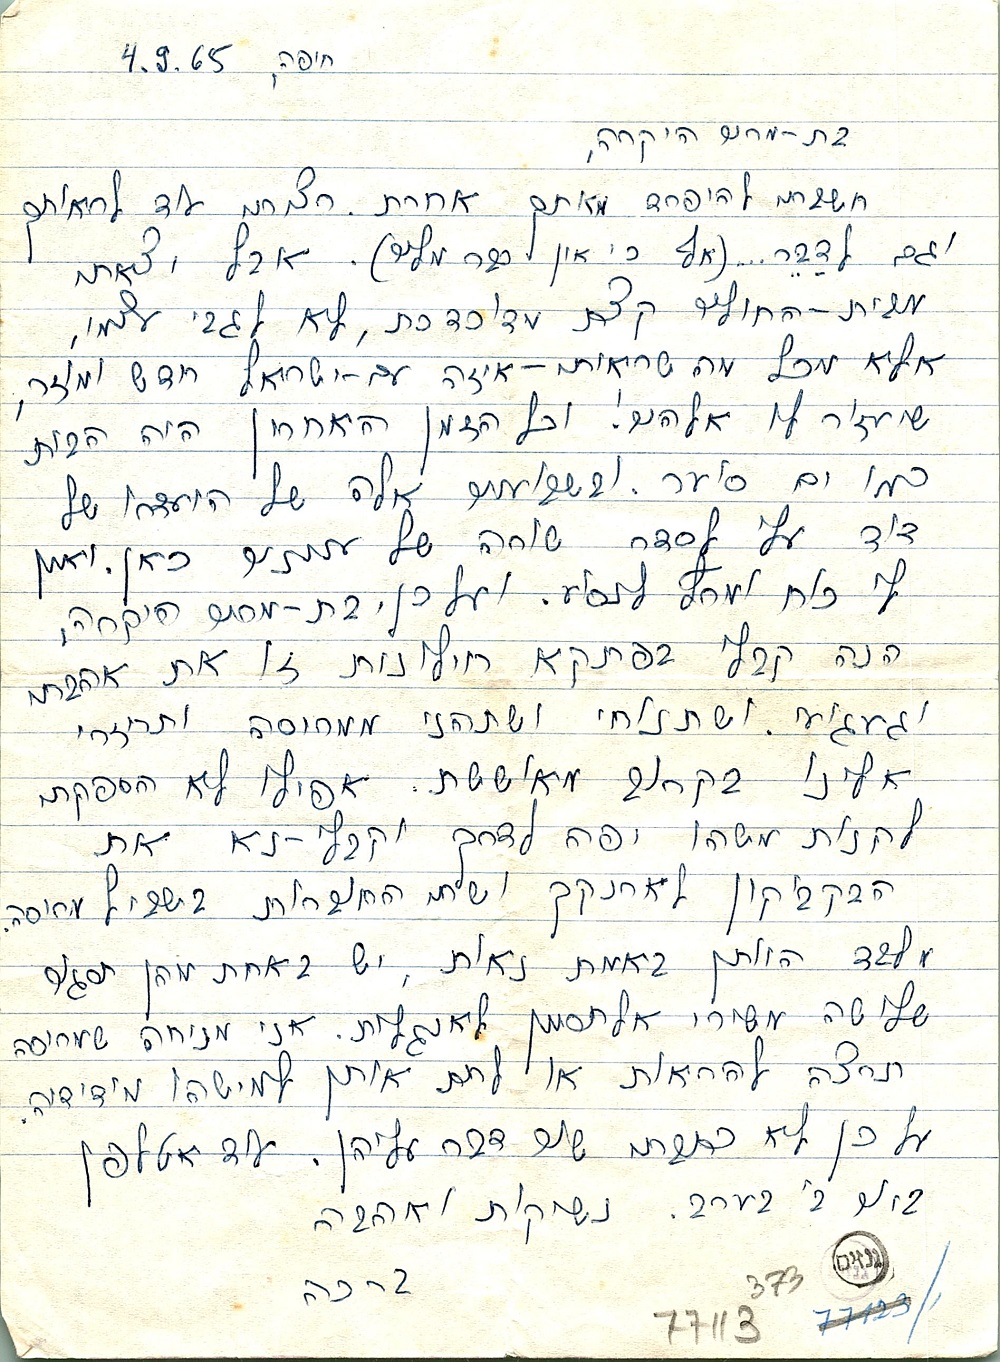 חיפה, 4.9.65
בת-מרים היקרה,
חשבתי להיפרד מאתך אחרת. רציתי עוד לראותך
וגם לדַבֵּר... (אף כי אין לי כבר מלים). אבל יצאתי
מבית-החולים קצת מדוכדכת, לא לגבי עצמי,
אלא מכל מה שראיתי - איזה עם-ישראל חדש ומוזר,
שיעזור לו אלהים! וכל הזמן האחרון היה הבית
כמו ים סוער. ובשבועיים אלה של היעדרו של
דוד עלי לסדר שורה של ענינים כאן. ואין
לי כוח ומרץ לנסוע. ועל כן, בת-מרים היקרה,
הנה קבלי בפתקא חילונית זו את אהבתי
וגעגועי. ושתנוחי ושתהני ממריסה ותחזרי
אלינו בקרוב מאוששת. אפילו לא הספקתי
לקנות משהו יפה לדרך וקבלי-נא את
הבקבוקון לארנקך ושתי החוברות בשביל מריסה.
מלבד היותן באמת נאות, יש באחת מהן תרגום
שלושה משירי אלתרמן לאנגלית. אני מניחה שמריסה
תרצה להראות או לתת אותן למישהו מידידיה.
על כן לא כתבתי שום דבר עליהן. עוד אטלפן
ביום ב' בערב. נשיקות ואהבה
ברכה
גנזים
373
77113
77123/י